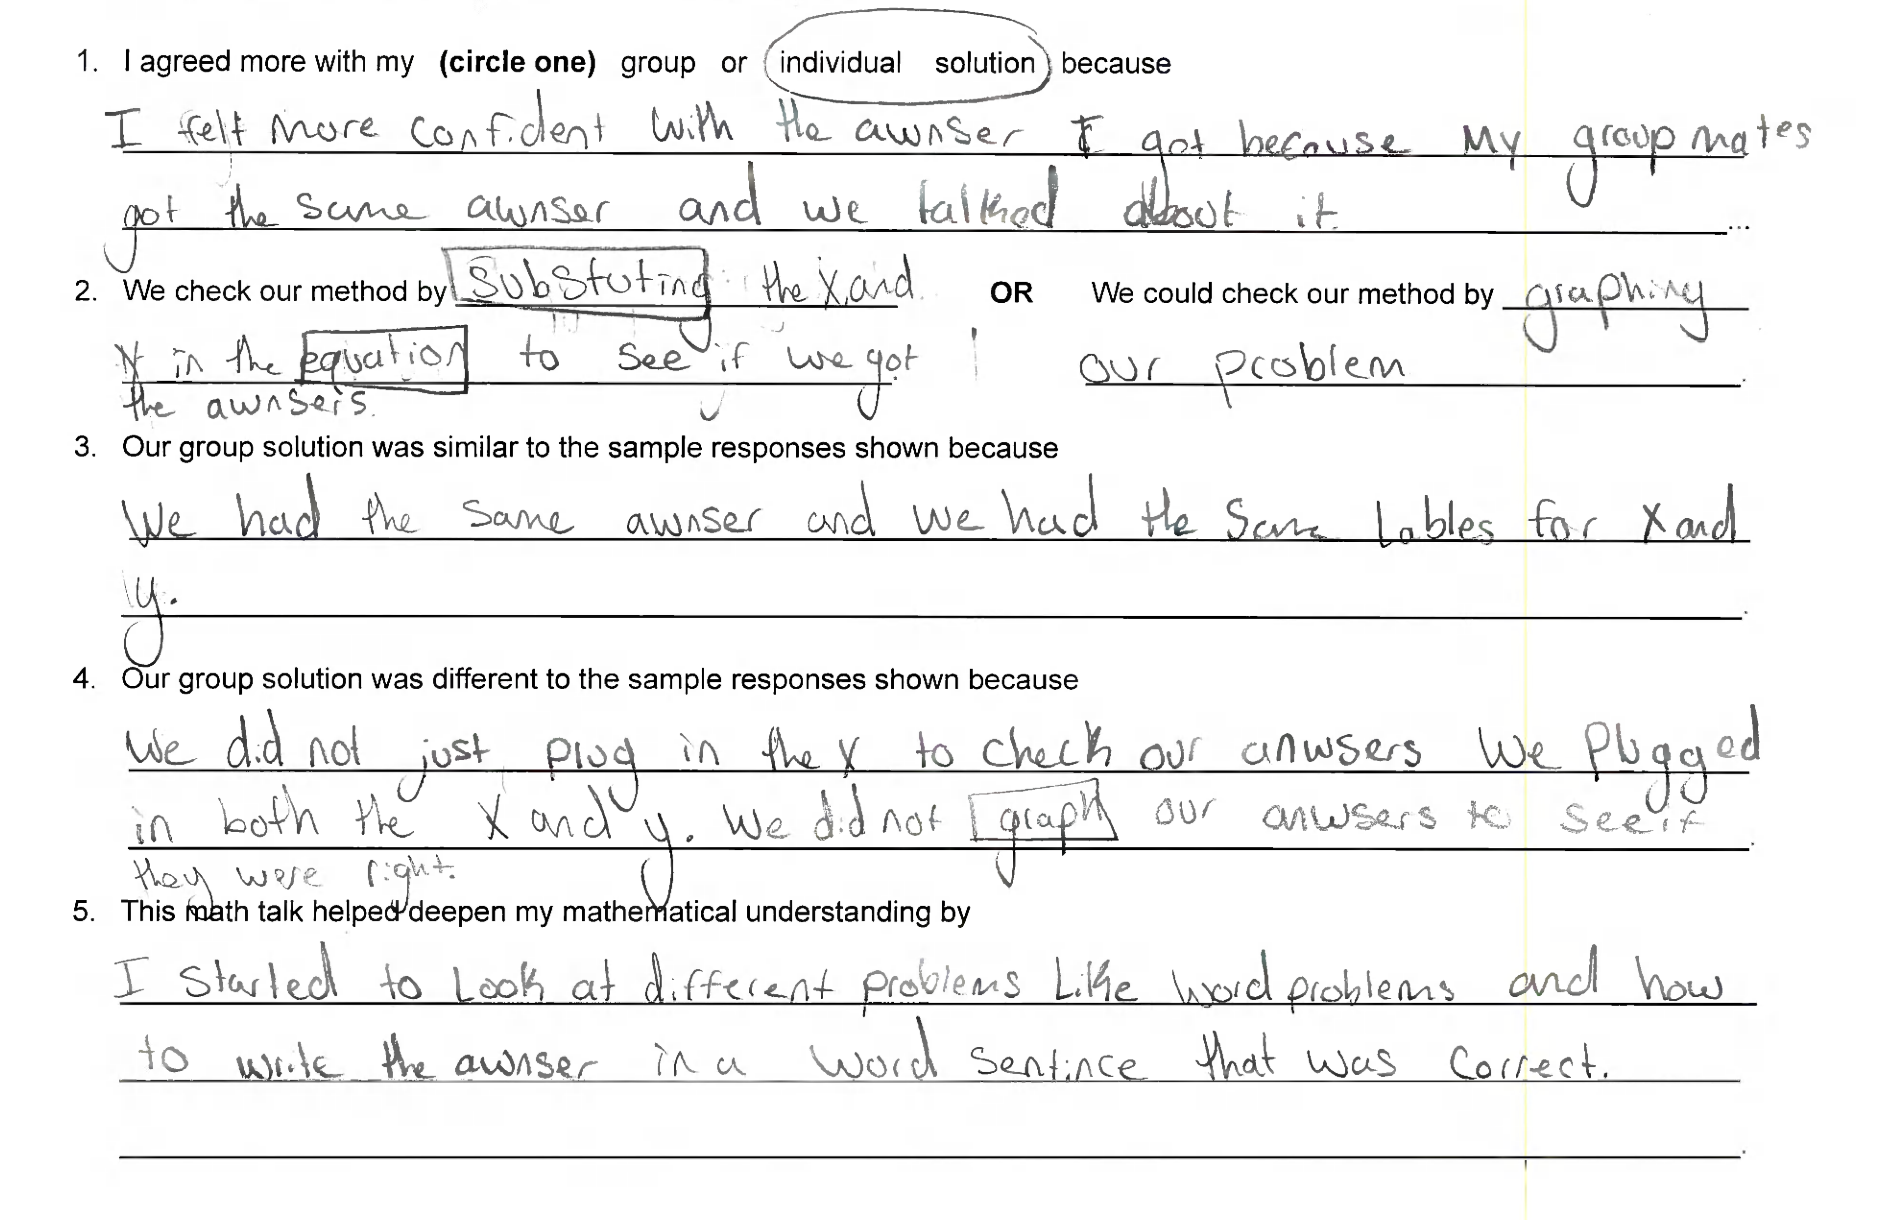 1. I agreed more with my (circle one) group or individual solution because
I felt more confident with the awnser I got because my group mates
got the same awnser and we talked about it. ...
2. We check our method by Substuting the X and OR We could check our method by graphing
Y in the equation to see if we got our problem
the awnsers.
3. Our group solution was similar to the sample responses shown because
We had the same awnser and we had the same lables for X and
y.
4. Our group solution was different to the sample responses shown because
We did not just plug in the X to check our anwsers We plugged
in both the X and y. We did not graph our anwsers to see if
they were right.
5. This math talk helped deepen my mathematical understanding by
I Started to Look at different problems Like word problems and how
to write the awnser in a word sentince that was correct.